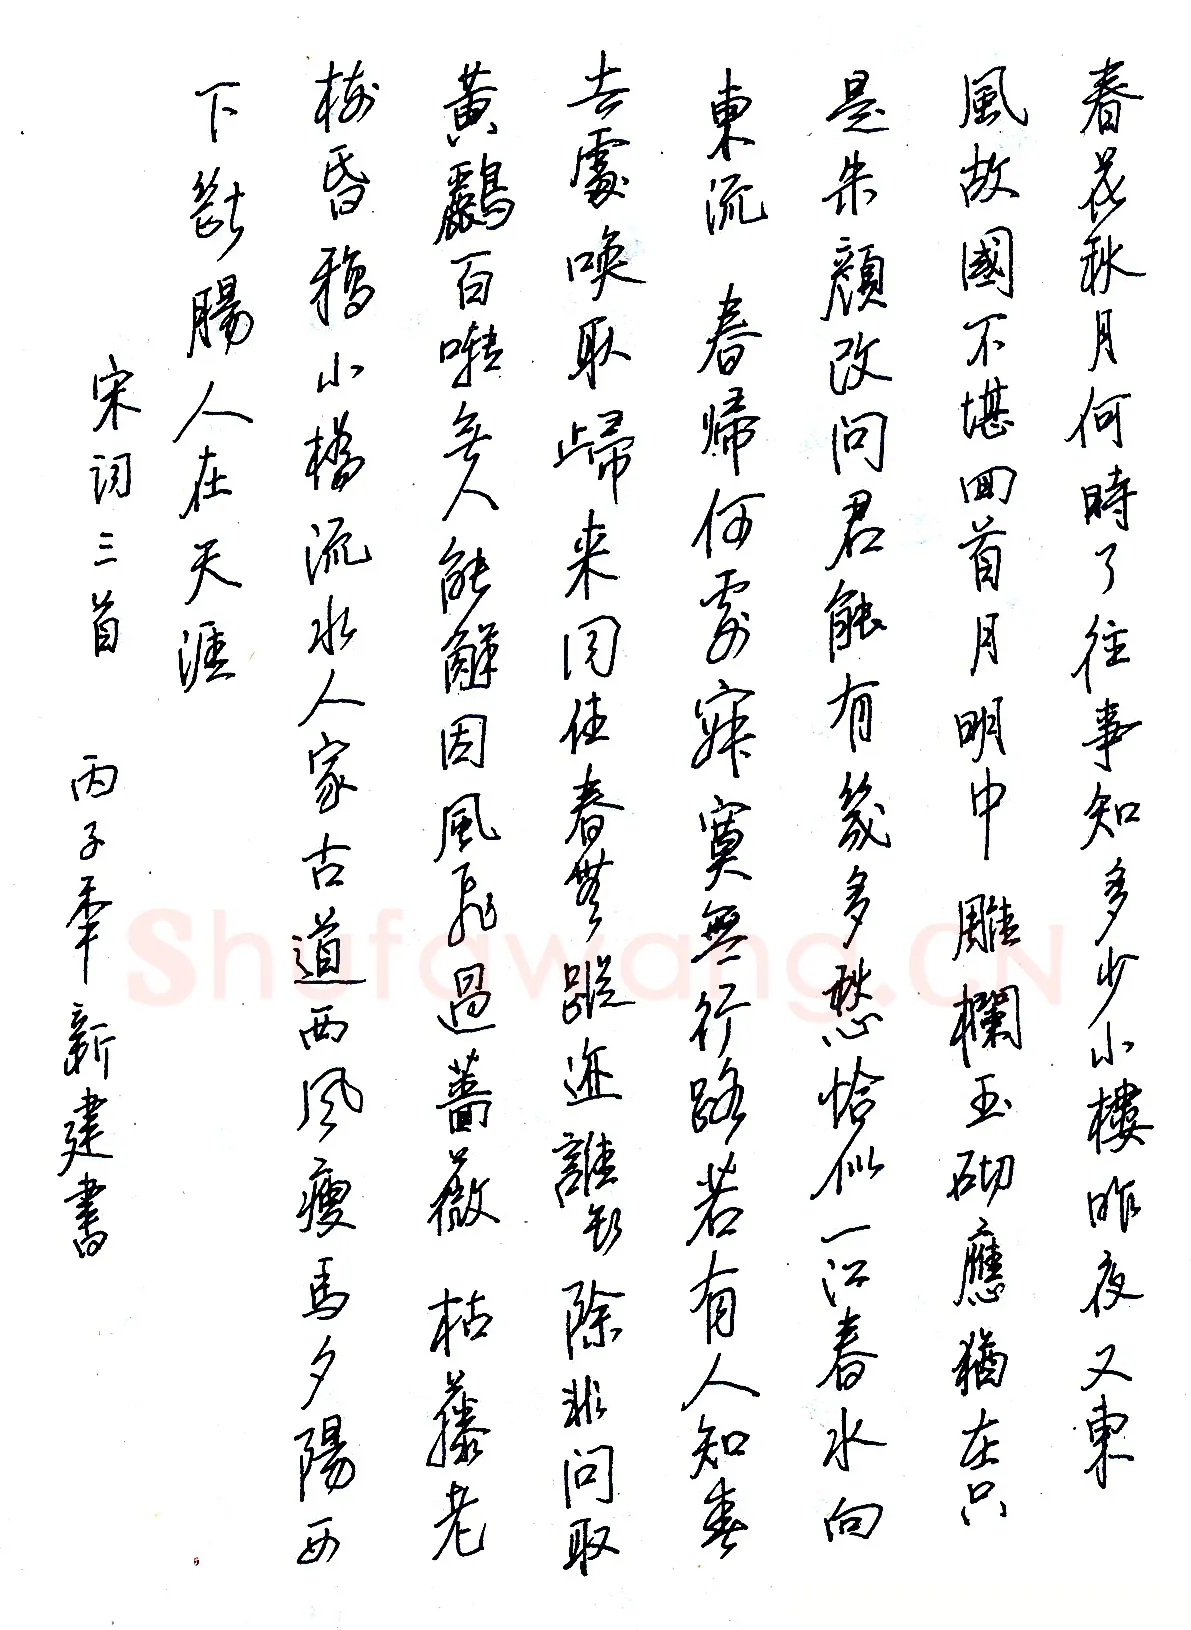 春花秋月何時了往事知多少小樓昨夜又東
風故國不堪回首月明中 雕欄玉砌應猶在只
是朱顏改問君能有幾多愁恰似一江春水向
東流 春歸何處寂寞無行路若有人知春
去處喚取歸来同住春無蹤迹誰知除非問取
黃鸝百囀無人能解因風飛過薔薇 枯藤老
樹昏鴉小橋流水人家古道西風瘦馬夕陽西
下斷腸人在天涯
宋詞三首 丙子年新建書
Shufawang.CN